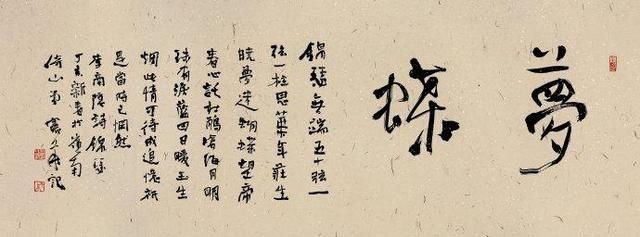 夢蝶
錦瑟無端五十弦一
弦一柱思華年莊生
曉夢迷蝴蝶望帝
春心託杜鵑滄海月明
珠有淚藍田日暖玉生
烟此情可待成追憶祇
是當時已惘然
李商隱詩錦瑟
丁亥新春於嶺南